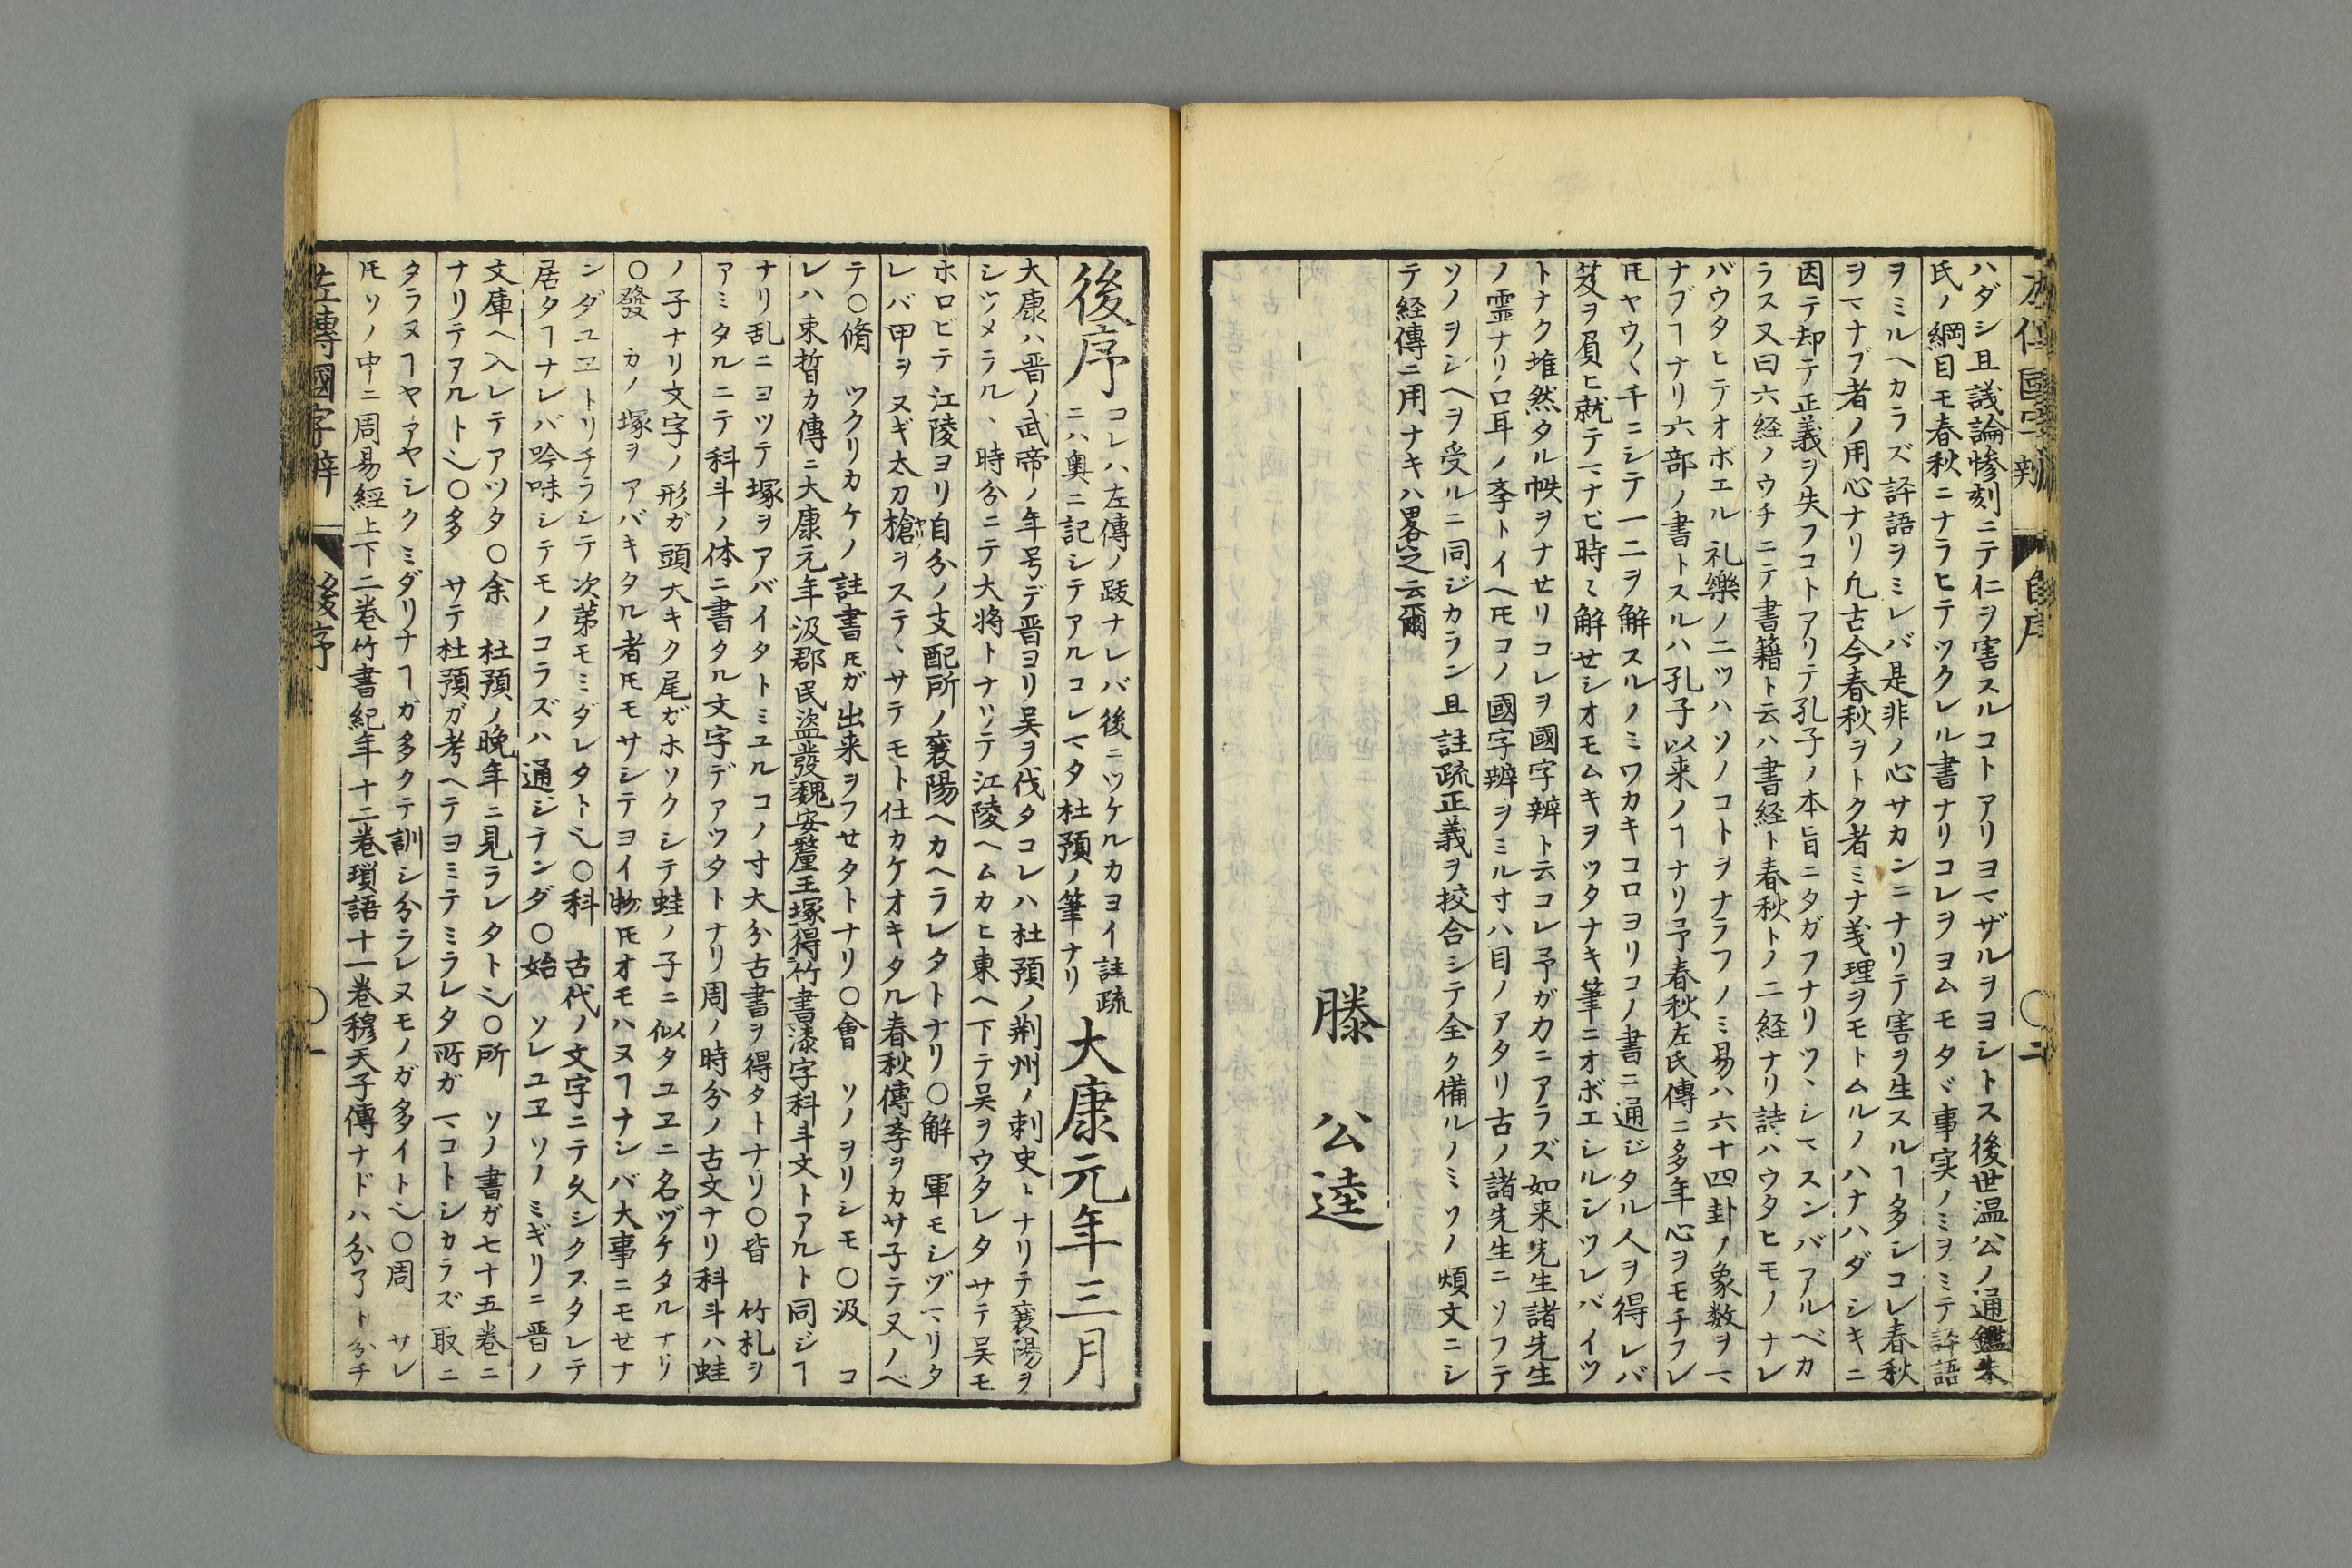 ハダシ且議論惨刻ニテ仁ヲ害スルコトアリヨマザルヲヨシトス後世温公ノ通鑑朱
氏ノ綱目モ春秋ニナラヒテツクレル書ナリコレヲヨムモタヾ事実ノミヲミテ評語
ヲミルヘカラズ評語ヲミレバ是非ノ心サカンニナリテ害ヲ生スルヿ多シコレ春秋
ヲマナブ者ノ用心ナリ凢古今春秋ヲトク者ミナ義理ヲモトムルノハナハダシキニ
因テ却テ正義ヲ失フコトアリテ孔子ノ本旨ニタガフナリツヽシマスンバアルベカ
ラス又曰六経ノウチニテ書籍ト云ハ書経ト春秋トノ二経ナリ詩ハウタヒモノナレ
バウタヒテオボエル礼樂ノ二ツハソノコトヲナラフノミ易ハ六十四卦ノ象数ヲマ
ナブヿナリ六部ノ書トスルハ孔子以来ノヿナリ予春秋左氏傳ニ多年心ヲモチフレ
𪜈ヤウ〱千ニシテ一二ヲ解スルノミワカキコロヨリコノ書ニ通ジタル人ヲ得レバ
笈ヲ負ヒ就テマナビ時〻解せシオモムキヲツタナキ筆ニオボエシルシツレバイツ
トナク堆然タル帙ヲナせリコレヲ國字辨ト云コレ予ガカニアラズ如来先生諸先生
ノ霊ナリ口耳ノ斈トイヘ𪜈コノ國字辨ヲミル寸ハ目ノアタリ古ノ諸先生ニソフテ
ソノヲシヘヲ受ルニ同ジカラン且註疏正義ヲ挍合シテ全ク備ルノミソノ煩文ニシ
テ経傳ニ用ナキハ畧之云爾
滕公逵
後序
コレハ左傳ノ跋ナレバ後ニツケルカヨイ註疏
ニハ奥ニ記シテアルコレマタ杜預ノ筆ナリ
大康元年三月
大康ハ晋ノ武帝ノ年号デ晋ヨリ吴ヲ伐タコレハ杜預ノ荆州ノ刺史〻ナリテ襄陽ヲ
シヅメラルヽ時分ニテ大将トナリテ江陵ヘムカヒ東ヘ下テ吴ヲウタレタサテ吴モ
ホロビテ江陵ヨリ自分ノ支配所ノ襄陽ヘカヘラレタトナリ〇解　軍モシヅマリタ
レバ甲ヲヌギ太刀槍ヲステヽサテモト仕カケオキタル春秋傳斈ヲカサ子テ又ノベ
テ〇脩　ツクリカケノ註書𪜈ガ出来ヲフせタトナリ〇會　ソノヲリシモ〇汲　コ
レハ束晢カ傳ニ大康元年汲郡民盗發魏安釐王塚得竹書漆字科斗文トアルト同ジヿ
ナリ乱ニヨツテ塚ヲアバイタトミユルコノ寸大分古書ヲ得タトナリ〇皆　竹札ヲ
アミタルニテ科斗ノ体ニ書タル文字デアツタトナリ周ノ時分ノ古文ナリ科斗ハ蛙
ノ子ナリ文字ノ形ガ頭大キク尾ガホソクシテ蛙ノ子ニ似タユヱニ名ヅケタルナリ
〇發　カノ塚ヲアバキタル者𪜈モサシテヨイ物𪜈オモハヌヿナレバ大事ニモせナ
ンダユヱトリチラシテ次第モミダレタト也〇科　古代ノ文字ニテ久シクスタレテ
居タヿナレバ吟味シテモノコラズハ通ジテンダ〇始　ソレユヱソノミギリニ晋ノ
文庫ヘ入レテアツタ〇余　杜預ノ晩年ニ見ラレタト也〇所　ソノ書ガ七十五巻ニ
ナリテアルト也〇多　サテ杜預ガ考ヘテヨミテミラレタ所ガマコトシカラズ取ニ
タラヌヿヤアヤシクミダリナヿガ多クテ訓シ分ラレヌモノガ多イト也〇周　サレ
𪜈ソノ中ニ周易經上下二巻竹書紀年十二巻瑣語十一巻穆天子傳ナドハ分了ト分チ
左傳國字辨　後序　〇一